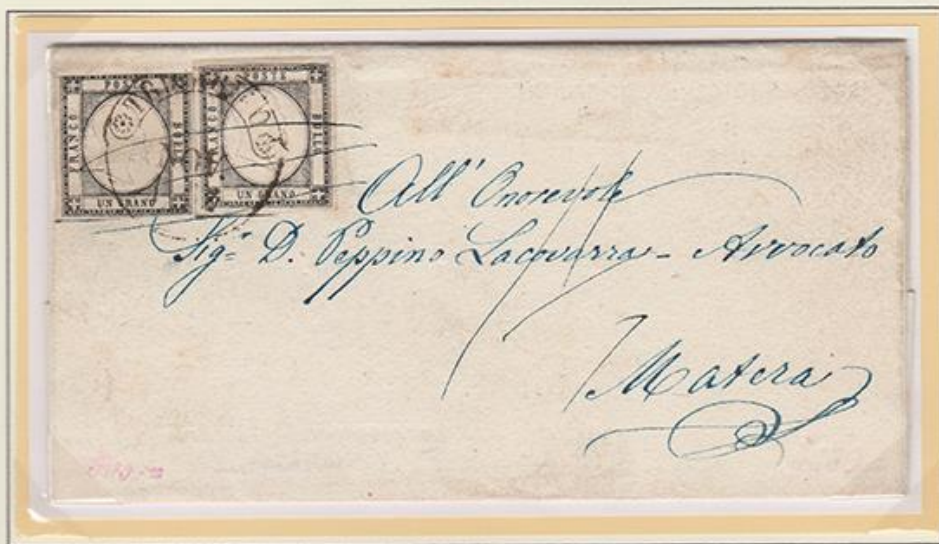 POSTE
FRANCO
BOLLO
UN GRANO
POSTE
FRANCO
BOLLO
UN GRANO
All' Onorevole
Sig.e D. Peppino Lacovarra - Avvocato
Matera